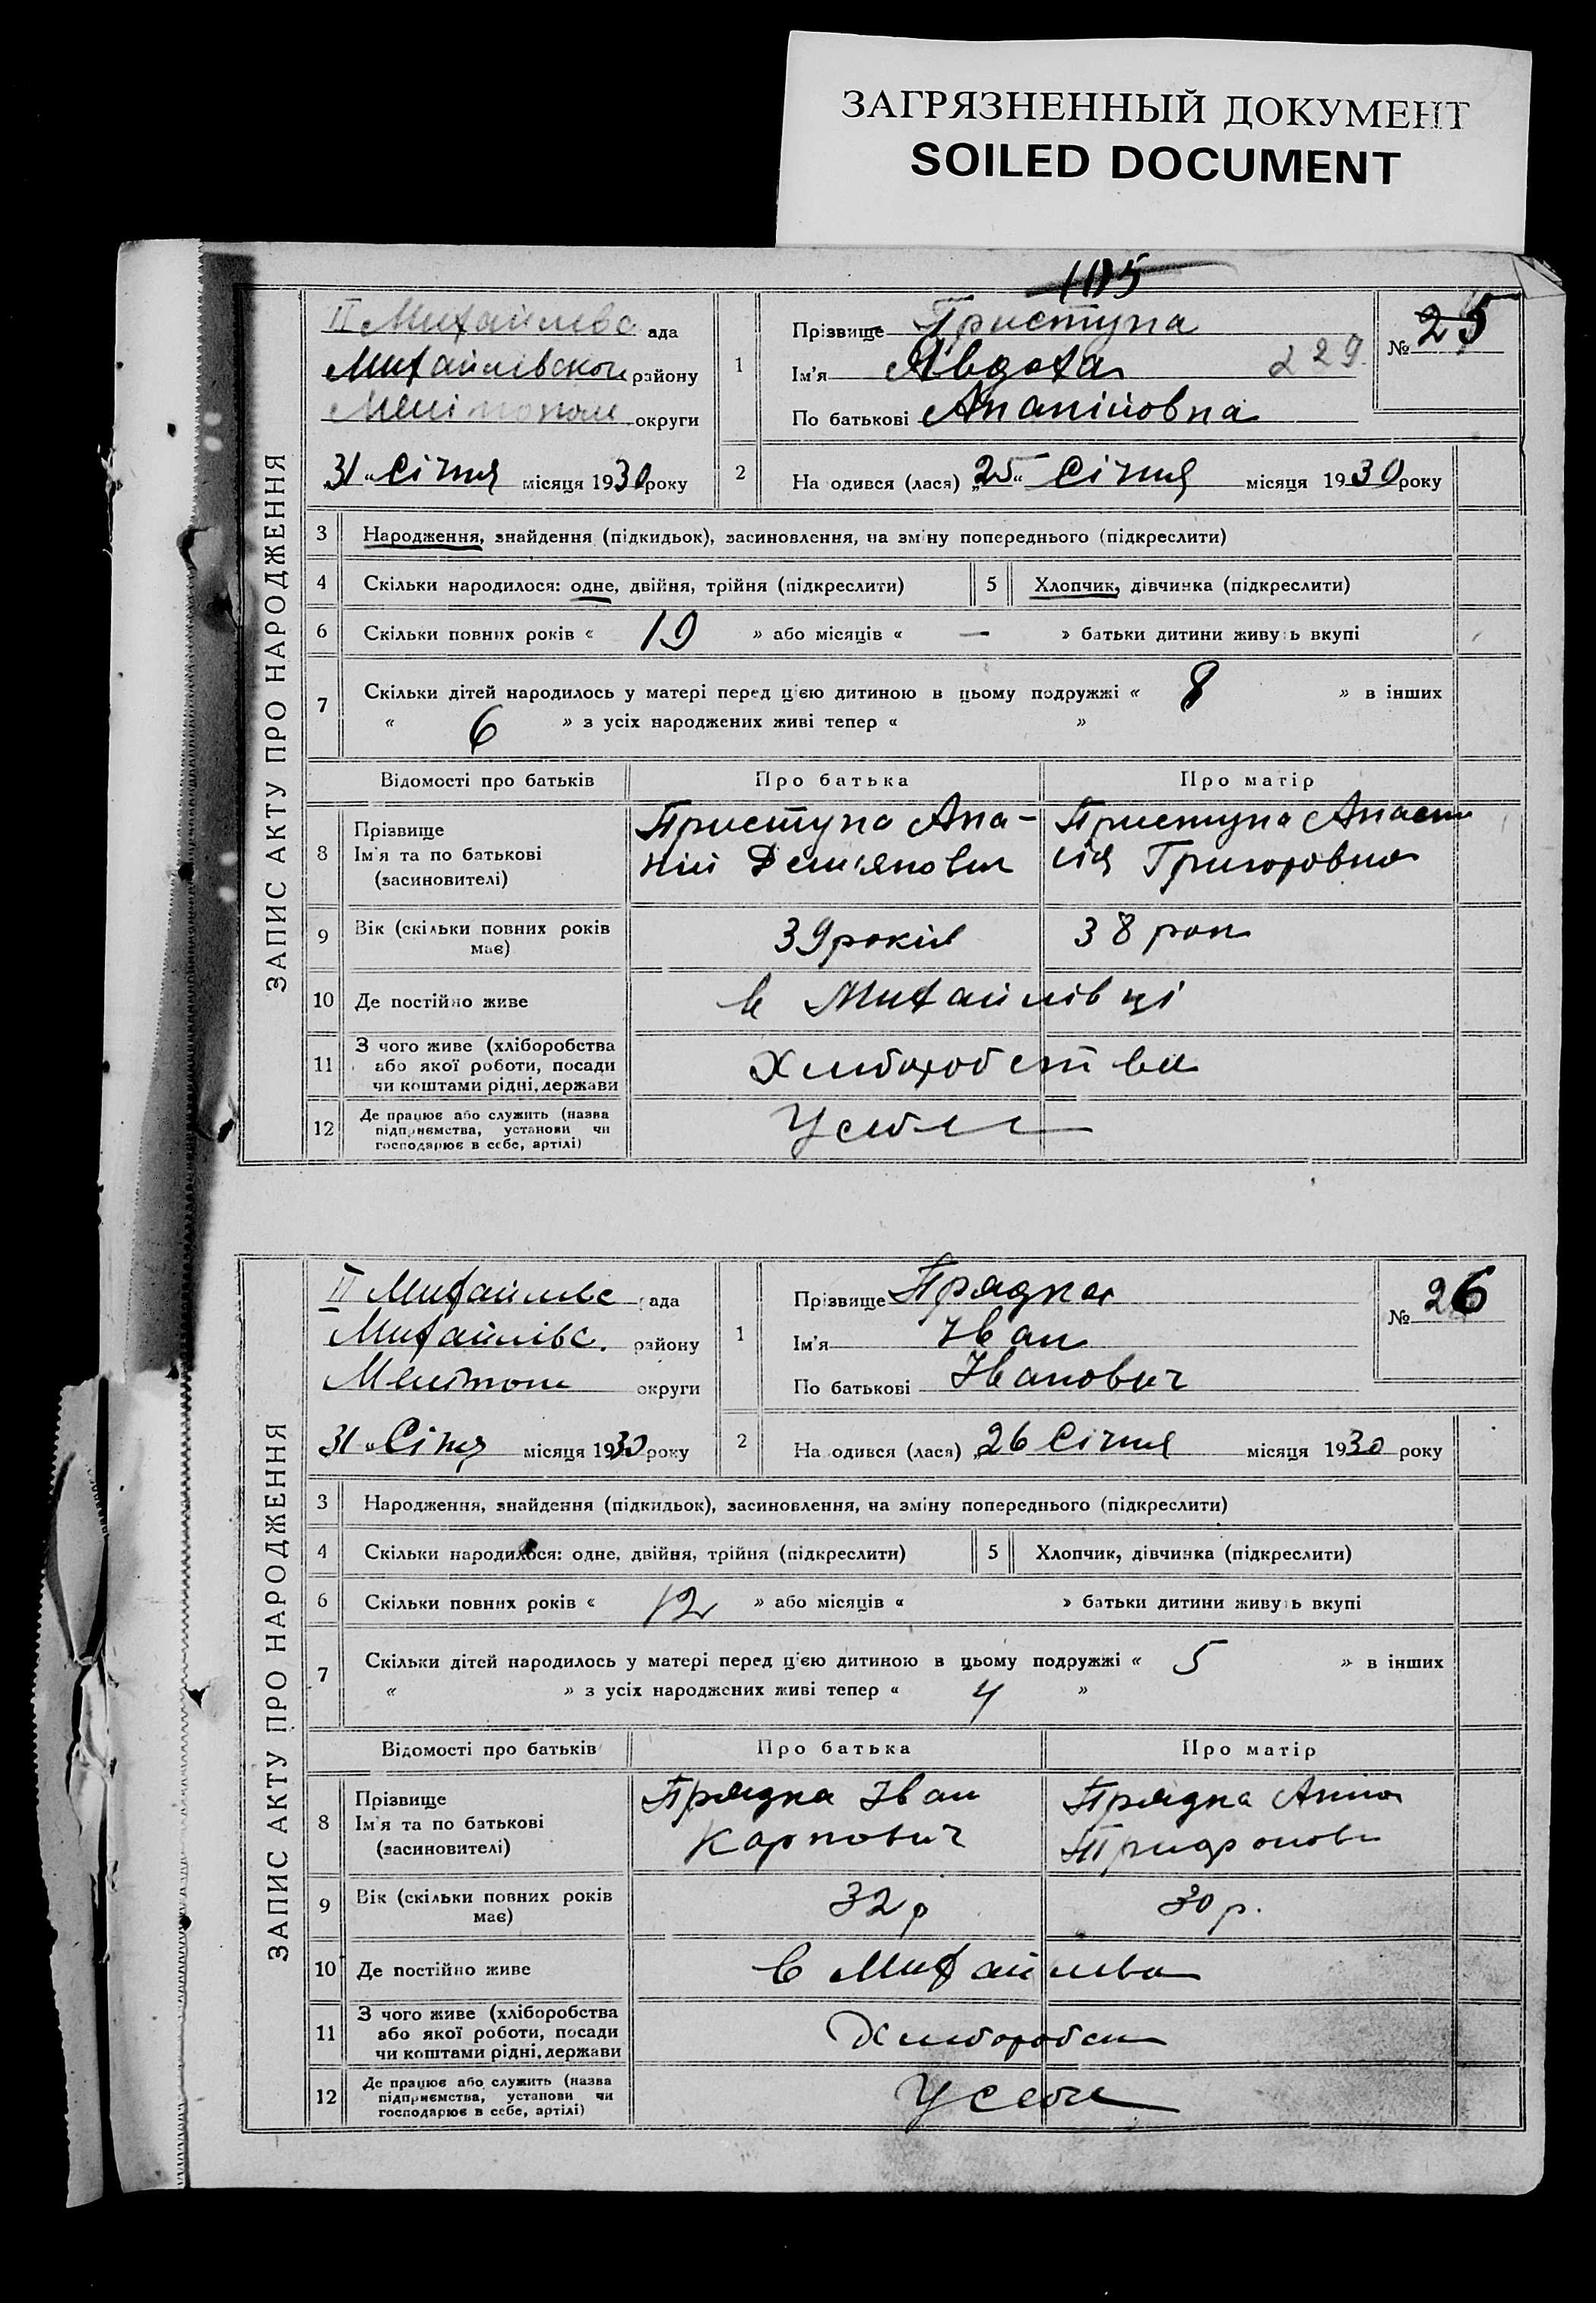 ЗАГРЯЗНЕННЫЙ ДОКУМЕНТ
SOILED DOCUMENT
ЗАПИС АКТУ ПРО НАРОДЖЕННЯ
II Михайлівс ада
Михайлівског району
округи
31 „ Січня місяця 1930 року
1
Прізвище Приступа
Ім'я Явдоха 229
По батькові Ананійовна
№ 25
2 На одився (лася) „25“ Січня місяця 1930 року
3 Народження, знайдення (підкидьок), засиновлення, на зміну попереднього (підкреслити)
4 Скільки народилося: одне, двійня, трійня (підкреслити) 5 Хлопчик, дівчинка (підкреслити)
6 Скільки повних років « 19 » або місяців « — » батьки дитини живуть вкупі
7 Скільки дітей народилось у матері перед цією дитиною в цьому подружжі « 8 » в інших
« 6 » з усіх народжених живі тепер « »
Відомості про батьків Про батька Про матір
8 Прізвище
Ім'я та по батькові
(засиновителі)
Приступа Ана-
ній Дем'янович
Приступа Анаст
сія Григоровна
9 Вік (скільки повних років
має)
39 років 38 рок
10 Де постійно живе в Михайлівці
11 З чого живе (хліборобства
або якої роботи, посади
чи коштами рідні, держави
Хлиборобства
12 Де працює або служить (назва
підприємства, установи чи
господарює в себе, артілі)
Усебе
ЗАПИС АКТУ ПРО НАРОДЖЕННЯ
II Михайлівс ада
Михайлівс. району
Меліпол округи
31 „ Січня місяця 1930 року
1
Прізвище Прядка
Ім'я Іван
По батькові Іванович
№ 26
2 На одився (лася) „26 Січня місяця 1930 року
3 Народження, знайдення (підкидьок), засиновлення, на зміну попереднього (підкреслити)
4 Скільки народилося: одне, двійня, трійня (підкреслити) 5 Хлопчик, дівчинка (підкреслити)
6 Скільки повних років « 12 » або місяців « » батьки дитини живуть вкупі
7 Скільки дітей народилось у матері перед цією дитиною в цьому подружжі « 5 » в інших
« » з усіх народжених живі тепер « 4 »
Відомості про батьків Про батька Про матір
8 Прізвище
Ім'я та по батькові
(засиновителі)
Прядка Іван
Карпович
Прядка Анна
Трифонов
9 Вік (скільки повних років
має)
32 р 30 р.
10 Де постійно живе в Михайлівц
11 З чого живе (хліборобства
або якої роботи, посади
чи коштами рідні, держави
Хлиборобст
12 Де працює або служить (назва
підприємства, установи чи
господарює в себе, артілі)
Усебе